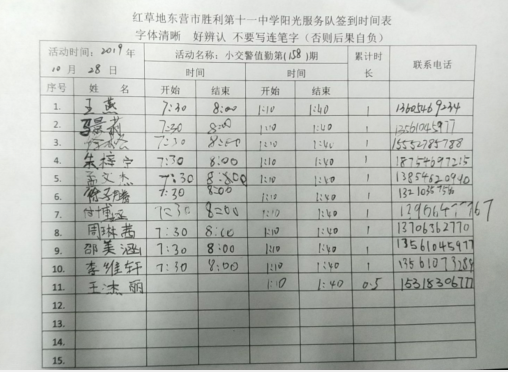 红草地东营市胜利第十一中学阳光服务队签到时间表
字体清晰 好辨认 不要写连笔字（否则后果自负）
活动时间：2019 年 10 月 28 日 活动名称：小交警值勤第(158)期 累计时长 联系电话
时间 时间
序号 姓 名 开始 结束 开始 结束
1. 王燕 7:30 8:00 1:10 1:40 1 13605469234
2. 7:30 8:00 1:10 1:40 1
3. 7:30 8:00 1:10 1:40 1 15552785788
4. 朱梓宁 7:30 8:00 1:10 1:40 1 18754697215
5. 孟文杰 7:30 8:00 1:10 1:40 1 13854620940
6. 7:30 8:00 1:10 1:40 1
7. 付博文 7:30 8:00 1:10 1:40 1
8. 周琳茜 7:30 8:00 1:10 1:40 1 13706362770
9. 邵美涵 7:30 8:00 1:10 1:40 1 13561045977
10. 李維轩 7:30 8:00 1:10 1:40 1 13561073284
11. 王杰丽 1:10 1:40 0.5 15318306777
12.
13.
14.
15.